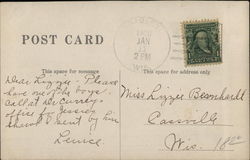 POST CARD
JAN
2 PM
WIS.
This space for message
This space for address only
Dear Lizzie - Please
have one of the boys
call at McCartneys
office for Jessies
shawl I sent by him
Miss Lizzie Bernhardt
Cassville
Wis.